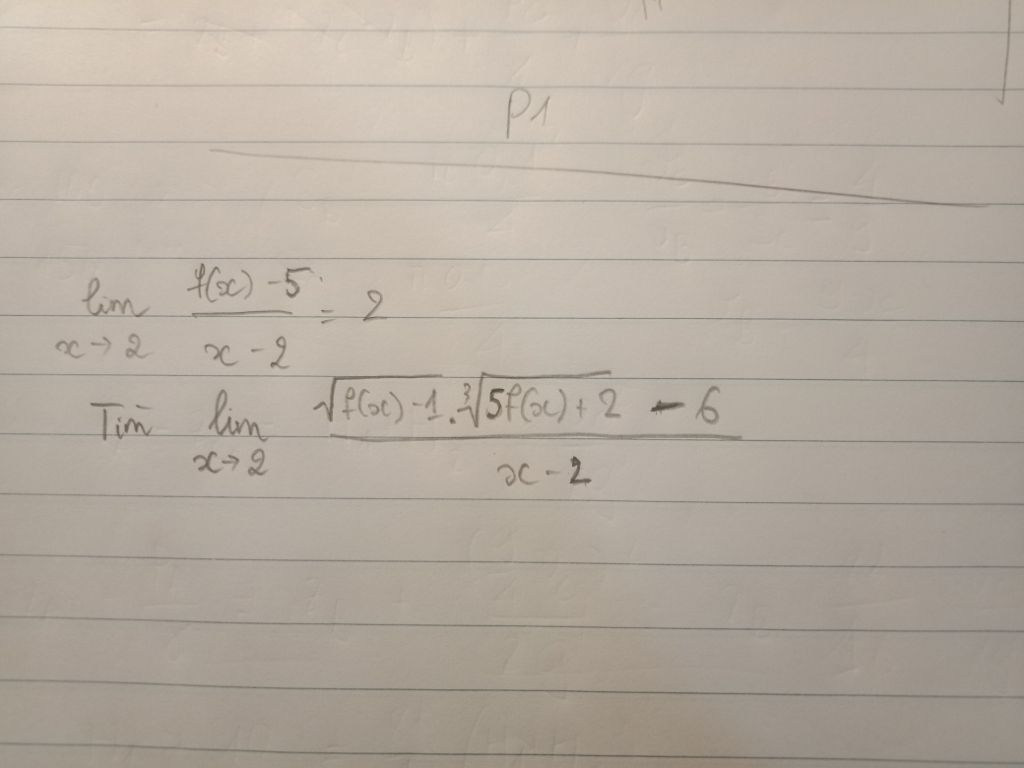 P1
lim x→2 (f(x) - 5)/(x - 2) = 2
Tìm lim x→2 (√(f(x) - 1) . ∛(5f(x) + 2) - 6)/(x - 2)